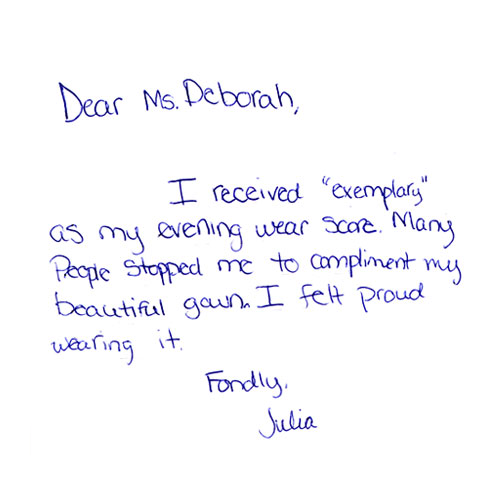 Dear Ms. Deborah,
I received "exemplary"
as my evening wear score. Many
People stopped me to compliment my
beautiful gown. I felt proud
wearing it.
Fondly,
Julia